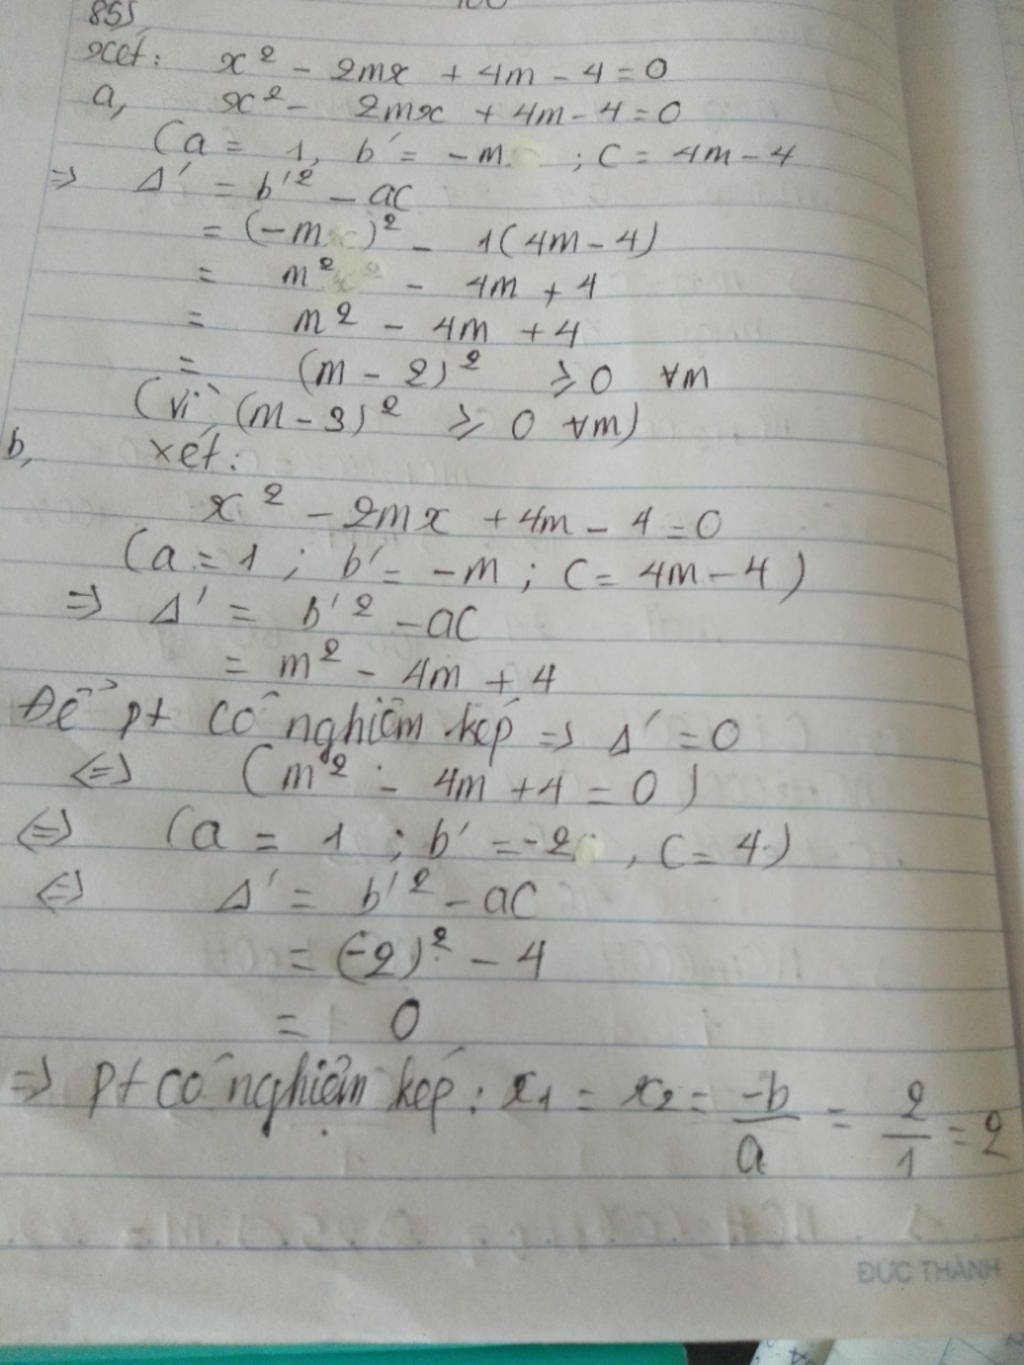 85)
xét: x² - 2mx + 4m - 4 = 0
a, x² - 2mx + 4m - 4 = 0
(a = 1, b' = -m ; C = 4m - 4
=> Δ' = b'² - ac
= (-m )² - 1(4m - 4)
= m² - 4m + 4
= m² - 4m + 4
= (m - 2)² ≥ 0 ∀m
(vì (m - 3)² ≥ 0 ∀m)
b, xét:
x² - 2mx + 4m - 4 = 0
(a = 1 ; b' = -m ; C = 4m - 4 )
=> Δ' = b'² - ac
= m² - 4m + 4
Để pt có nghiệm kép => Δ' = 0
<=> (m² - 4m + 4 = 0 )
<=> (a = 1 ; b' = -2 , C = 4)
<=> Δ' = b'² - ac
= (-2)² - 4
= 0
=> pt có nghiệm kép : x₁ = x₂ = -b/a = 2/1 = 2
ĐỨC THÀNH